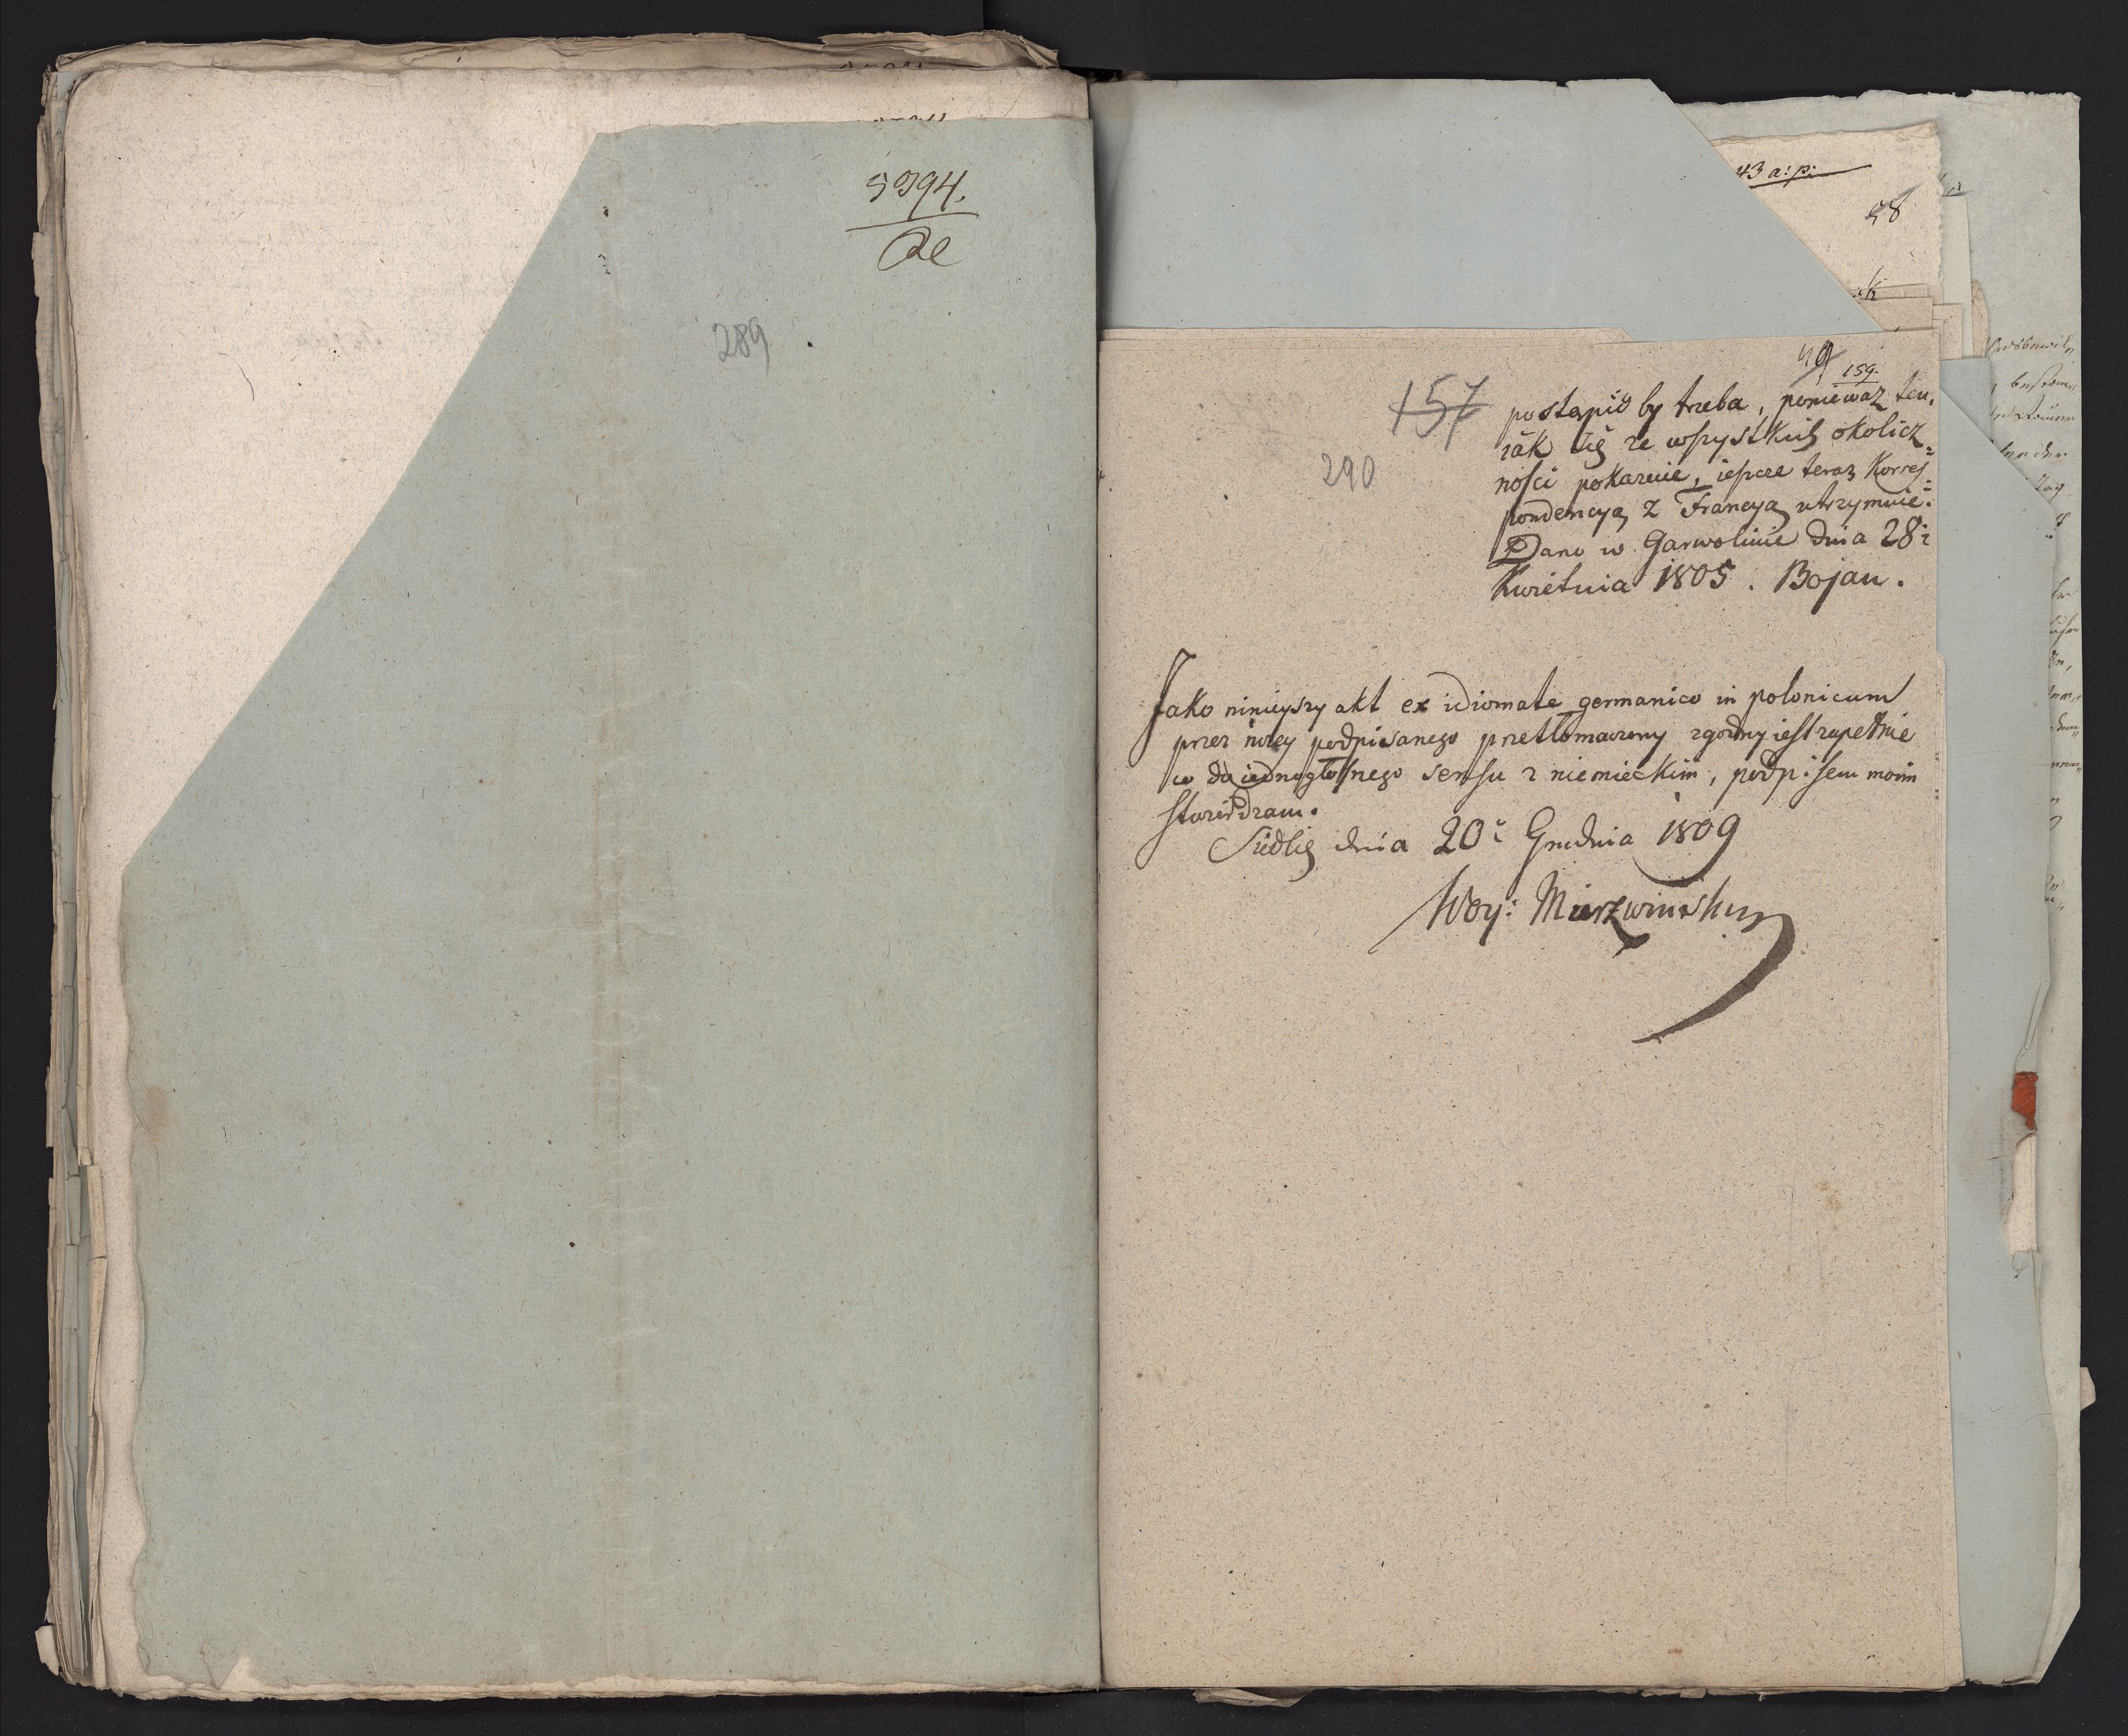 5994.
De
289
43 a: p:
58
49
159.
157
290
postąpić by treba, ponieważ ten,
iak się ze wszystkich okolicz=
ności pokazuie, ieszcze teraz Korres=
pondencyą z Francyą utrzymuie.
Dano w Garwolinie dnia 28i
Kwietnia 1805. Bojan.
Jako ninieyszy akt ex idiomate germanico in polonicum
przez niżey podpisanego przetłomaczony zgodny iest zupełnie
co do iednogłosnego sensu z niemieckim, podpisem moim
stwierdzam.
Siedlce dnia 20i Grudnia 1809
Woy: Mierzwinsky